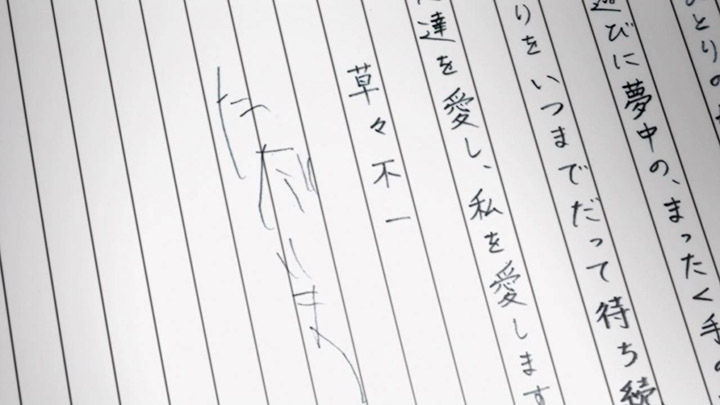 ひとりの
遊びに夢中の、まったく手の
りをいつまでだって待ち続
達を愛し、私を愛します
草々不一
ただいま